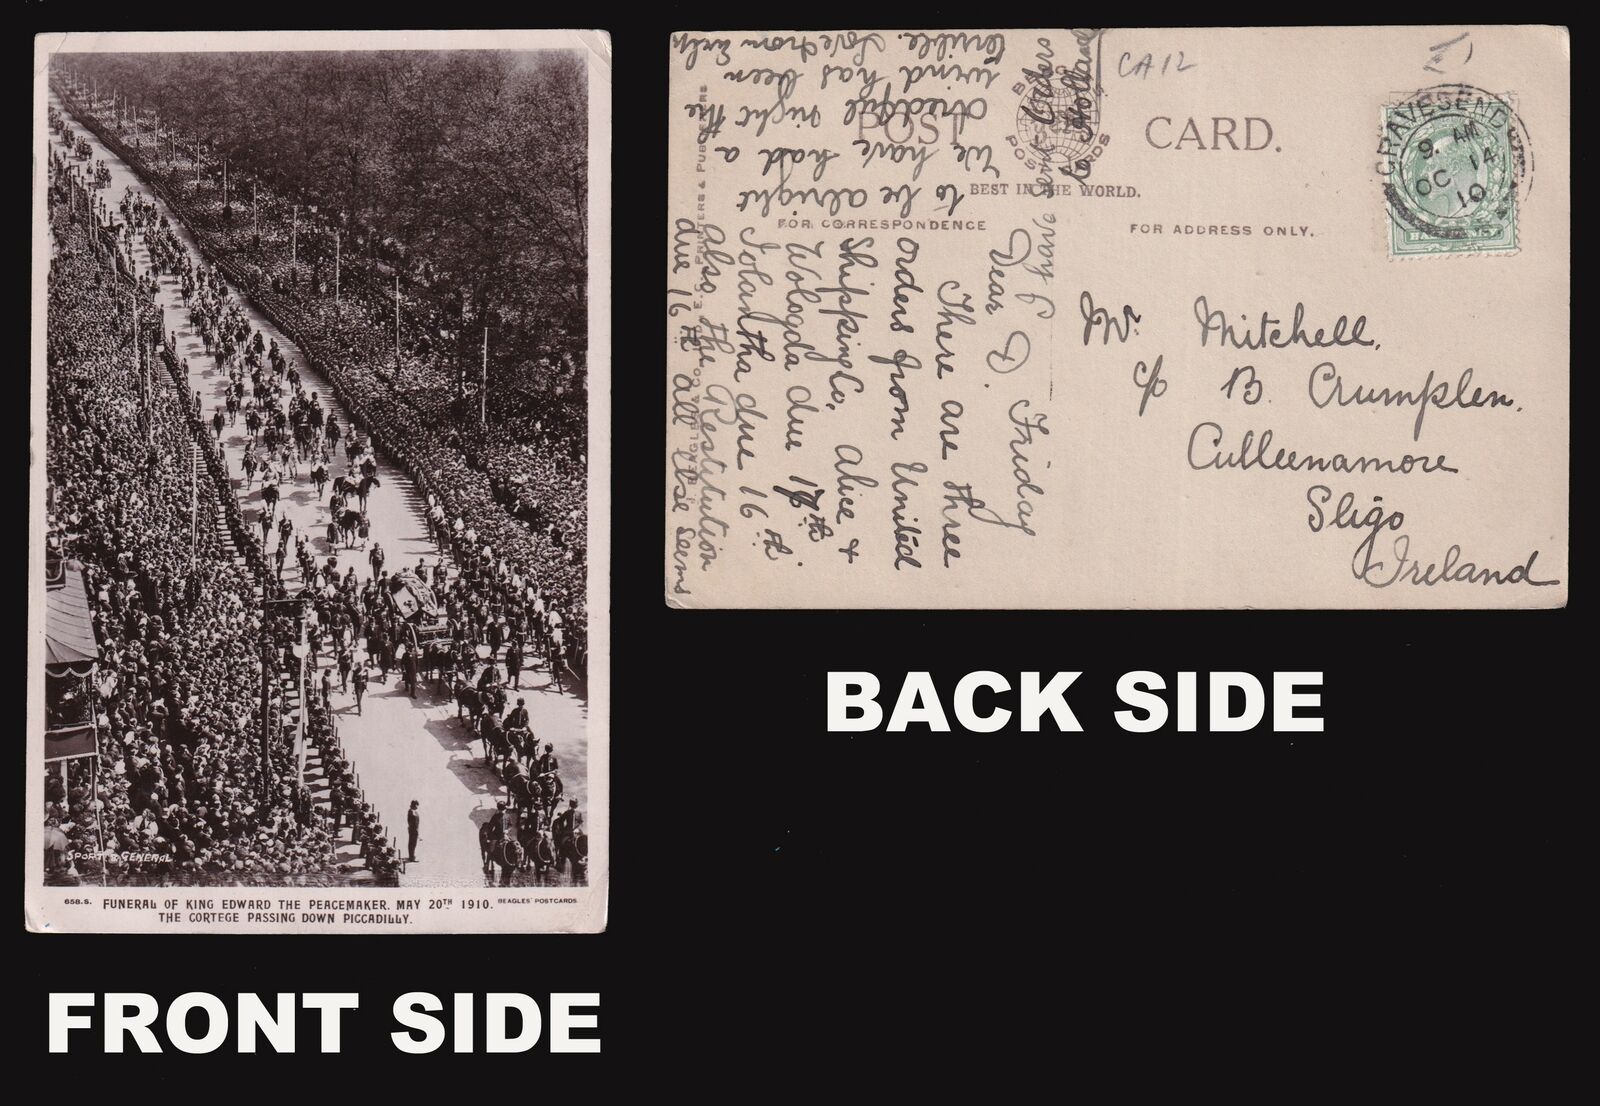 SPORT & GENERAL
658.S. FUNERAL OF KING EDWARD THE PEACEMAKER. MAY 20TH 1910. BEAGLES' POSTCARDS
THE CORTEGE PASSING DOWN PICCADILLY.
FRONT SIDE
CA12
POST CARD.
BEST IN THE WORLD.
FOR CORRESPONDENCE
FOR ADDRESS ONLY.
GRAVESEND
9. AM
OC 14
10
Mr. Mitchell,
c/o B. Crumplen,
Culleenamore
Sligo
Ireland
Friday
Dear D.
There are three
orders from United
Shipping Co, Alice &
Wologda due 17th.
Iolantha due 16th.
Also the Restitution
due 16th all else seems
to be alright
We have had a
dredful night the
wind has been
terrible. Love from
orders
to Holland
BACK SIDE